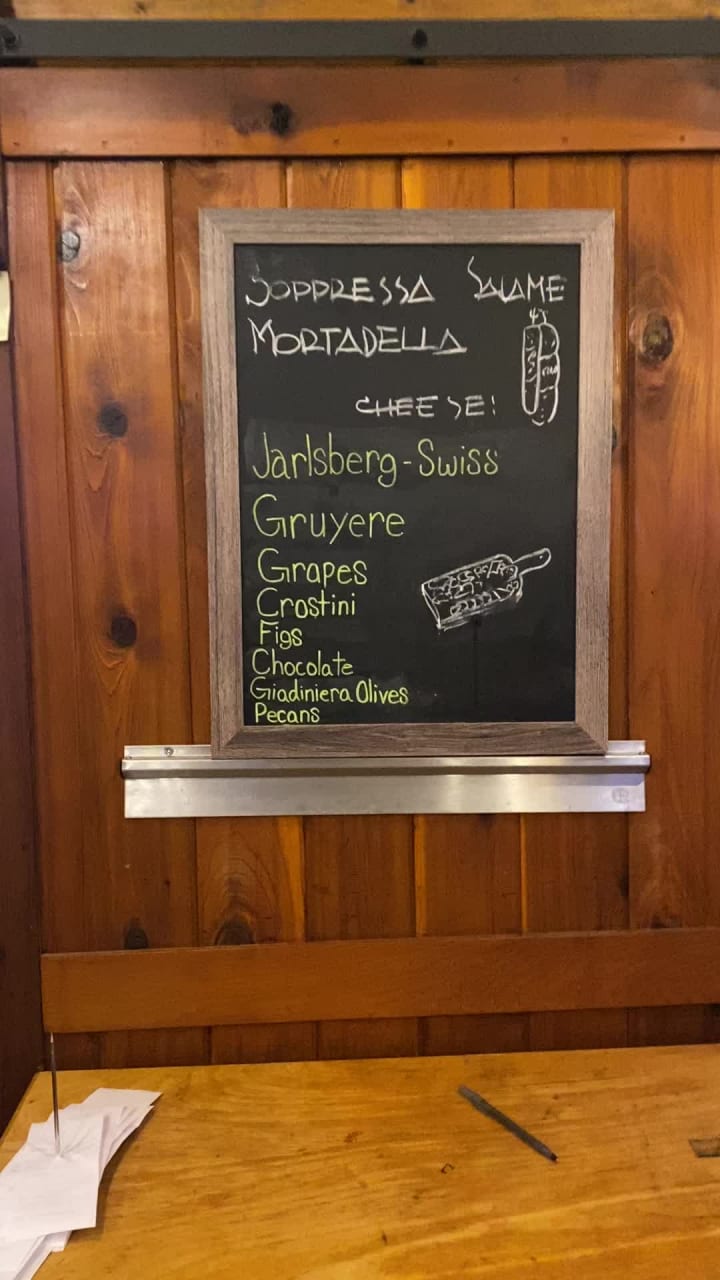 SOPPRESSA SALAME
MORTADELLA
CHEESE!
Jarlsberg-Swiss
Gruyere
Grapes
Crostini
Figs
Chocolate
Giadiniera Olives
Pecans